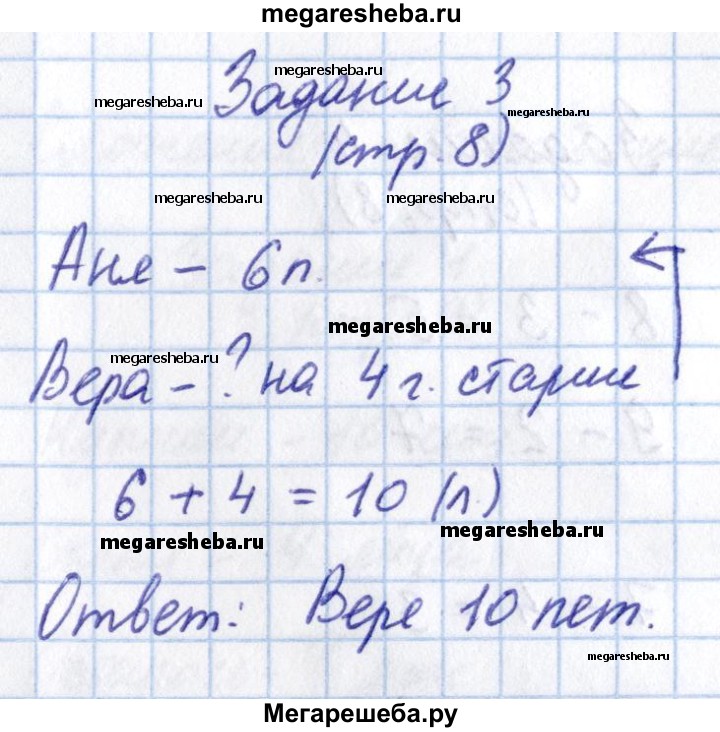 megaresheba.ru
megaresheba.ru
megaresheba.ru Задание 3 megaresheba.ru
(стр. 8)
megaresheba.ru megaresheba.ru
Аня – 6 л.
megaresheba.ru
megaresheba.ru
Вера – ? на 4 г. старше
6 + 4 = 10 (л)
megaresheba.ru megaresheba.ru
Ответ: Вере 10 лет.
megaresheba.ru
Мегарешеба.ру